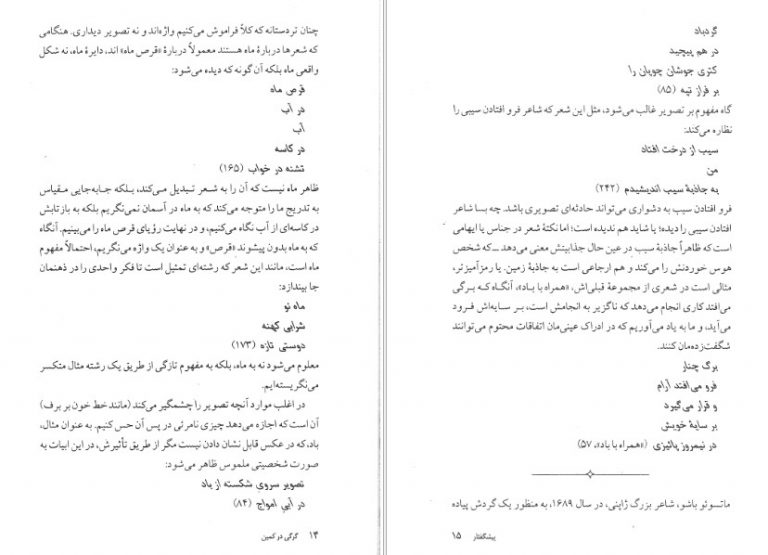 چنان تردستانه که کلاً فراموش می‌کنیم واژه‌اند و نه تصویر دیداری. هنگامی
که شعرها دربارهٔ ماه هستند معمولاً دربارهٔ «قرص ماه» اند، دایرهٔ ماه، نه شکل
واقعی ماه بلکه آن گونه که دیده می‌شود:
قرص ماه
در آب
آب
در کاسه
تشنه در خواب (۱۶۵)
ظاهر ماه نیست که آن را به شعر تبدیل می‌کند، بلکه جابه‌جایی مقیاس
به تدریج ما را متوجه می‌کند که به ماه در آسمان نمی‌نگریم بلکه به بازتابش
در کاسه‌ای از آب نگاه می‌کنیم، و در نهایت رؤیای قرص ماه را می‌بینیم. آنگاه
که به ماه بدون پیشوند «قرص» و به عنوان یک واژه می‌نگریم، احتمالاً مفهوم
ماه است، مانند این شعر که رشته‌ای تمثیل است تا فکر واحدی را در ذهنمان
جا بیندازد:
ماه نو
شرابی کهنه
دوستی تازه (۱۷۳)
معلوم می‌شود نه به ماه، بلکه به مفهوم تازگی از طریق یک رشته مثال متکسر
می‌نگریسته‌ایم.
در اغلب موارد آنچه تصویر را چشمگیر می‌کند (مانند خط خون بر برف)
آن است که اجازه می‌دهد چیزی نامرئی در پس آن حس کنیم. به عنوان مثال،
باد، که در عکس قابل نشان دادن نیست مگر از طریق تأثیرش، در این ابیات به
صورت شخصیتی ملموس ظاهر می‌شود:
تصویر سروی شکسته از باد
در آبی امواج (۸۴)
۱۴ گرگی در کمین
گردباد
در هم پیچید
کتری جوشانِ چوپانی را
بر فراز تپه (۸۵)
گاه مفهوم بر تصویر غالب می‌شود، مثل این شعر که شاعر فرو افتادن سیبی را
نظاره می‌کند:
سیب از درخت افتاد
من
به جاذبهٔ سیب اندیشیدم (۲۴۲)
فرو افتادن سیب به دشواری می‌تواند حادثه‌ای تصویری باشد. چه بسا شاعر
افتادن سیبی را دیده؛ یا شاید هم ندیده است؛ اما نکتهٔ شعر در جناس یا ایهامی
است که ظاهراً جاذبهٔ سیب در عین حال جذابیتش معنی می‌دهد ــ که شخص
هوس خوردنش را می‌کند و هم ارجاعی است به جاذبهٔ زمین. یا رمزآمیزتر،
مثالی است در شعری از مجموعهٔ قبلی‌اش، «همراه با باد»، آنگاه که برگی
می‌افتد کاری انجام می‌دهد که ناگزیر به انجامش است، بر سایه‌اش فرود
می‌آید، و ما به یاد می‌آوریم که در ادراک عینی‌مان اتفاقات محتوم می‌توانند
شگفت‌زده‌مان کنند.
برگ چنار
فرو می‌افتد آرام
و قرار می‌گیرد
بر سایهٔ خویش
در نیمروز پائیزی («همراه با باد»، ۵۷)
ماتسوئو باشو، شاعر بزرگ ژاپنی، در سال ۱۶۸۹، به منظور یک گردش پیاده
پیشگفتار ۱۵